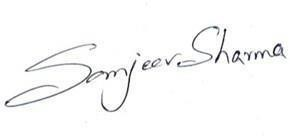 Sanjeev Sharma